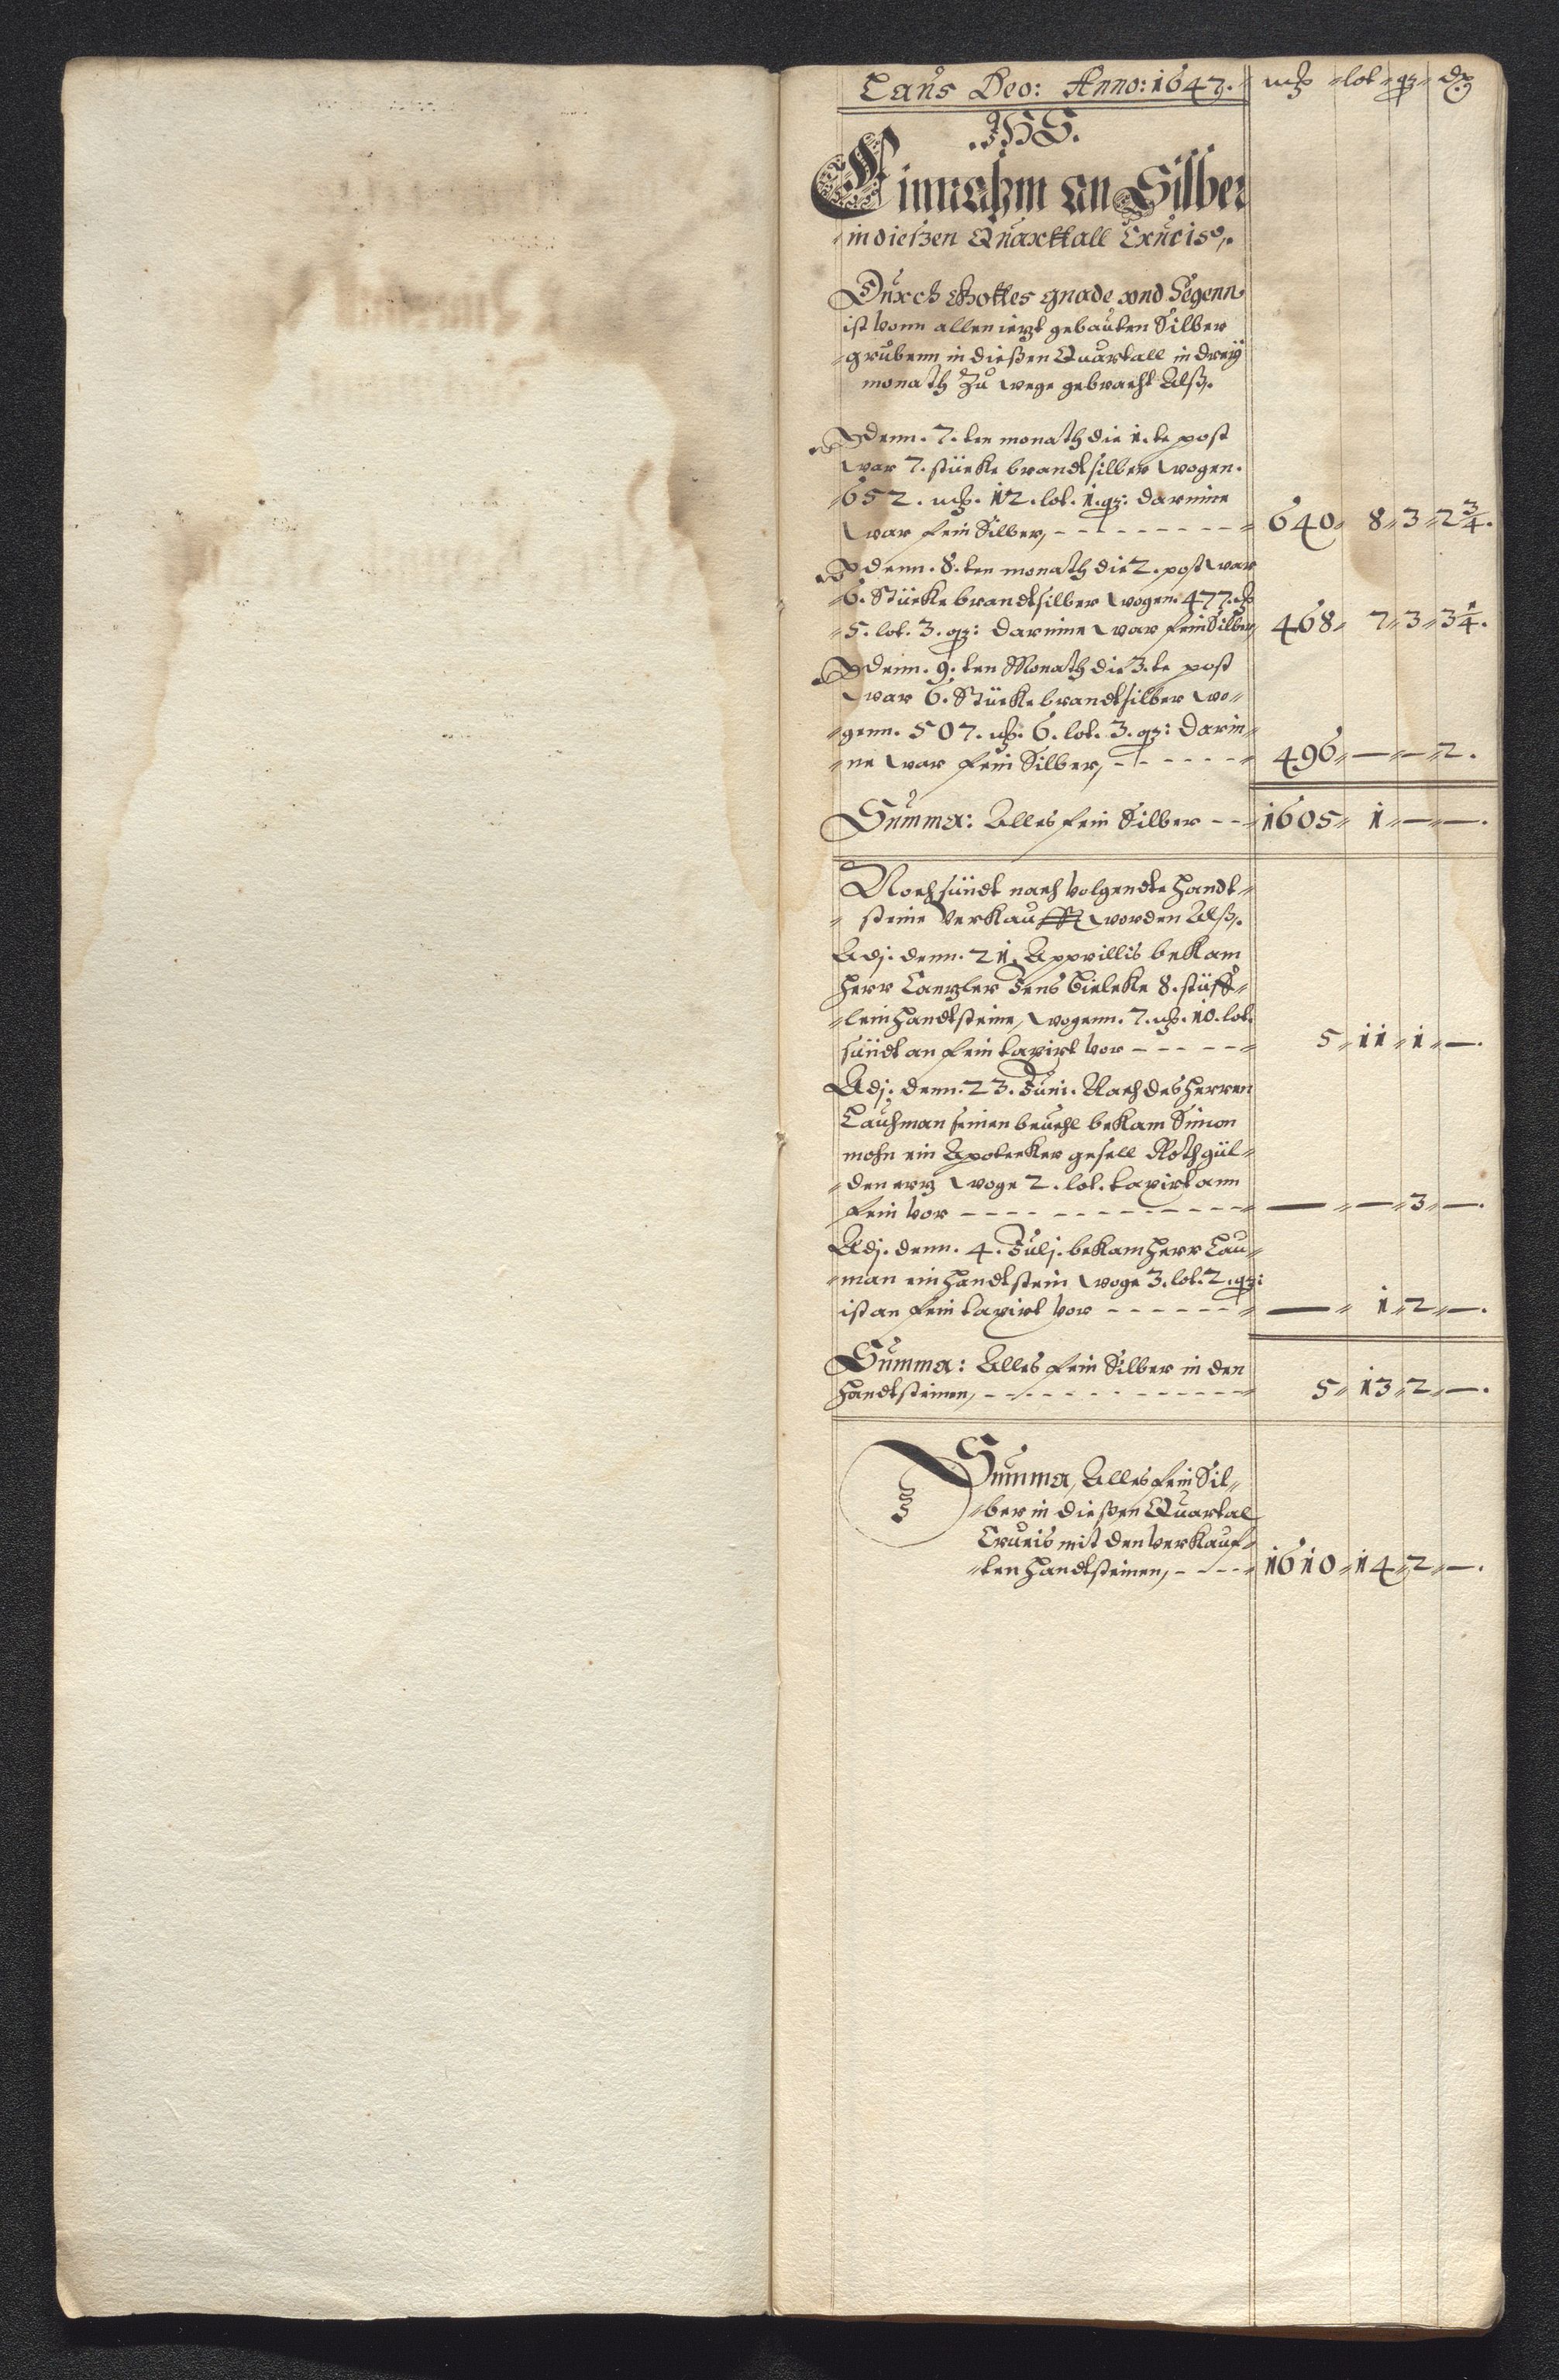 Laus Deo: Anno: 1647. mk lot qz d
.JHS.
Einnahm an Silber
in dießen Quarttall Crucis,.
Durch Gottes gnade vnd Segenn
ist vonn allen ietzt gebauten Silber
grubenn in dießen Quartall in dreÿ
monath zu wege gebracht Alß,.
denn. 7. ten monath die 1. te post
war 7. stücke brandtsilber wogen.
652. mk. 12. lot. 1. qz: darinne
war fein Silber, - - - - - - - 640 8 3 2 3/4.
denn. 8. ten monath die 2. post war
6. Stücke brandtsilber wogen. 477. mk
5. lot. 3. qz: darinne war fein Silber, 468 7 3 3 1/4.
denn. 9. ten Monath die 3. te post
war 6. Stücke brandtsilber wo=
=genn. 507. mk. 6. lot. 3. qz: darin=
=ne war fein Silber, - - - - - - 496 — — 2.
Summa: Alles fein Silber - - 1605 1 — —.
Noch sündt nach volgendte handt=
= steine verkaufft worden Alß,.
Adj. denn. 21. Apprillis bekam
herr Cantzler Jens Bielcke 8. stüff=
=lein handtsteine, wogenn. 7. mk. 10. lot.
sündt an fein taxirt vor - - - - - 5 11 1 —.
Adj: denn. 23. Juni. Nach des herren
Lauhman seinen beuehl bekam Simon
mohn ein Apotecker gesell Rothgül=
=den ertz woge 2. lot. taxirt ann
fein vor - - - - - - - - - - — — 3 —.
Adj. denn. 4. Julj. bekam herr Lau=
=man ein handtstein woge 3. lot. 2. qz:
ist an fein taxirt vor - - - - - - — 1 2 —.
Summa: Alles fein Silber in den
handtsteinen, - - - - - - - - - - 5 13 2 —.
Summa, Alles fein Sil=
=ber in dießen Quartal
Crucis mit den verkauf=
=ten handtsteinen, - - - - 1610 14 2 —.